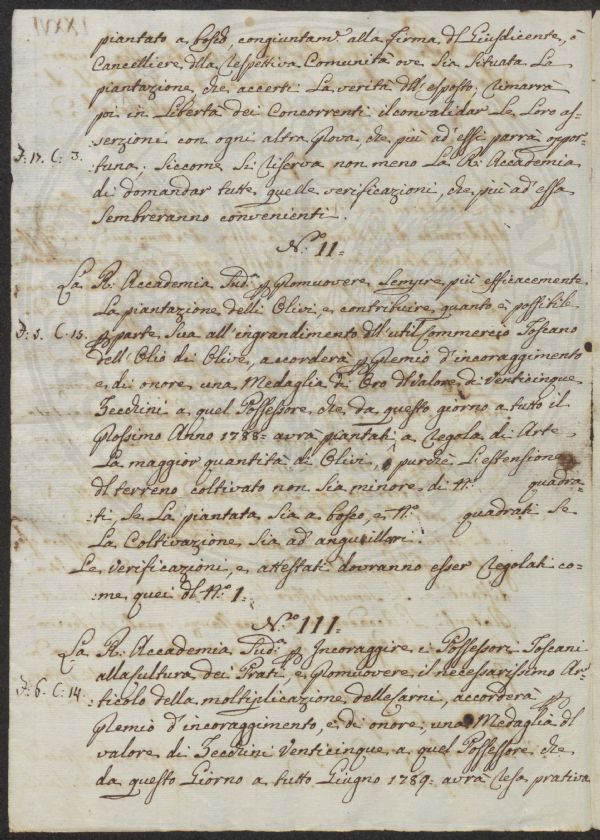 piantato a bosco, congiuntam.e alla firma dl Giusdicente, o
Cancelliere dlla respettiva Comunità ove sia situata la
piantazione, che accerti la verità dll'esposto, rimarrà
poi in libertà dei Concorrenti il convalidar le loro as-
serzioni con ogni altra prova, che più ad'essi parrà oppor-
F: 17. C: 3.
tuna; siccome si riserva non meno la R: Accademia
di domandar tutte quelle verificazioni, che più ad'essa
sembreranno convenienti.
N.o II=
La R: Accademia Sud.a p promuovere sempre più efficacemente
la piantazione delli Olivi, e contribuire quanto è possibile
F: 5. C: 15.
p parte sua all'ingrandimento dll'util Commercio Toscano
dell'Olio di Olive, accorderà p premio d'incoraggimento
e di onore una Medaglia di Oro dl valore di venticinque
Zecchini a quel Possessore, che da questo giorno a tutto il
prossimo Anno 1788= avrà piantati a regola di Arte
la maggior quantità di Olivi, purchè l'estensione
dl terreno coltivato non sia minore di N.o quadra-
ti, se la piantata sia a bosco, e N.o quadrati se
la Coltivazione sia ad anguillari.
Le verificazioni, e attestati dovranno esser regolati co-
:me quei dl N.o 1.
N.o III=
La R: Accademia Sud.a p Incoraggire i Possessori Toscani
alla Cultura dei Prati, e promuovere il necessarissimo Ar-
F: 6. C: 14.
:ticolo della moltiplicazione delle Carni, accorderà p
premio d'incoraggimento, e di onore, una Medaglia dl
valore di Zecchini Venticinque a quel Possessore che
da questo Giorno a tutto Giugno 1789= avrà resa prativa